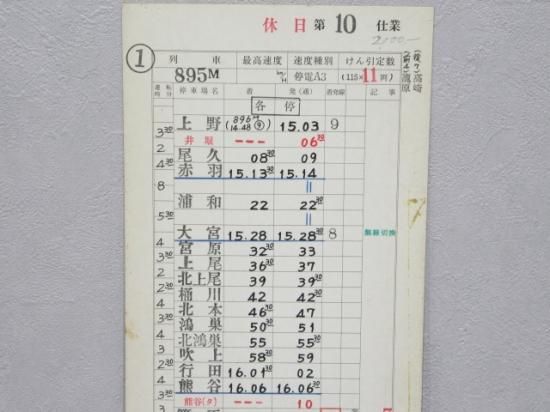 休日第10仕業
2,000-
①
列車 最高速度 速度種別 けん引定数
895M km/H 停電A3 (115×11両)
(後7)高崎
(前4)籠原
運転時分 停車場名 着 発(通) 着発線 記事
各停
上野 (896M 14.48 ⑨) 15.03 9
3 30 井堀 --- 06 30
2 尾久 08 30 09
4 30 赤羽 15.13 30 15.14
8 〃
浦和 22 22 30
5 30 〃
大宮 15.28 15.28 30 8 無線切換
4 宮原 32 30 33
3 30 上尾 36 30 37
2 北上尾 39 39 30
桶川 42 42 30
4 北本 46 30 47
3 30 鴻巣 50 30 51
4 北鴻巣 55 55 30
3 吹上 58 30 59
行田 16.01 30 02
4 熊谷 16.06 16.06 30
3 30 熊谷(タ) --- 10